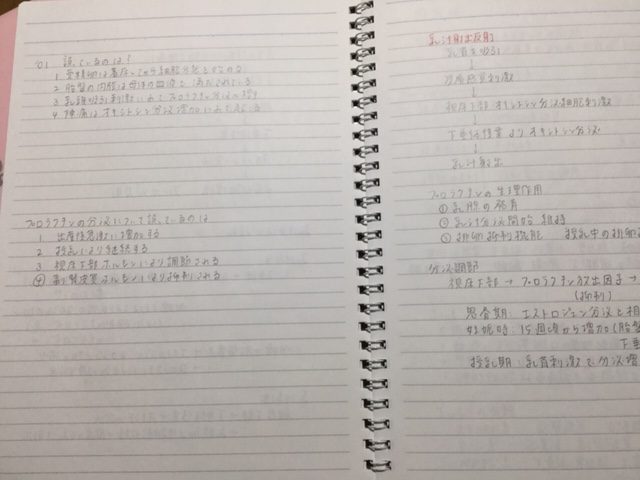 01 誤っているのは?
1 受精卵は着床してから細胞分裂を始める
2 胎盤の内腔は母体の血液で満たされている
3 乳頭吸引刺激によってプロラクチン分泌は増す
4 陣痛はオキシトシン分泌増加によりおこる
プロラクチンの分泌について誤っているのは
1 出産後急激に増加する
2 授乳により継続する
3 視床下部ホルモンにより調節される
④ 副腎皮質ホルモンにより抑制される
乳汁射出反射
乳首を吸引
↓
↓
視床下部 オキシトシン分泌細胞刺激
↓
下垂体後葉よりオキシトシン分泌
↓
乳汁射出
プロラクチンの生理作用
① 乳腺の発育
② 乳汁分泌開始 維持
③ 排卵抑制機能 授乳中の排卵
分泌調節
視床下部→プロラクチン放出因子→
(抑制)
思春期:エストロジェン分泌と相
妊娠時:15週頃から増加(胎盤
下垂
授乳期:乳首刺激で分泌増